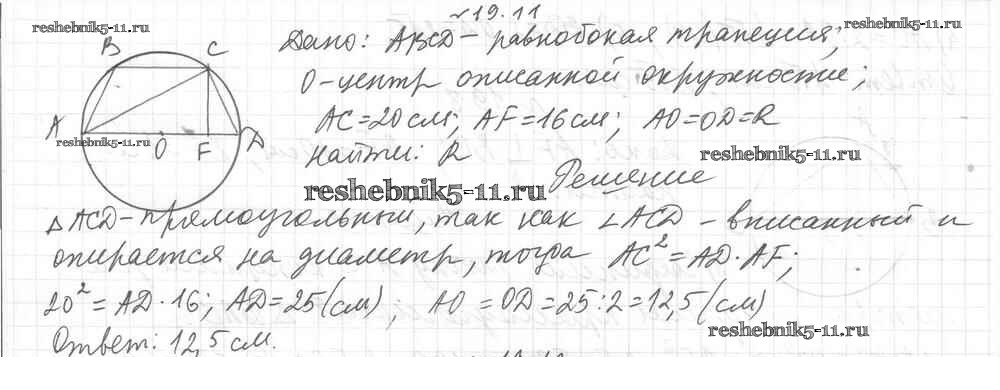 №19.11
reshebnik5-11.ru
reshebnik5-11.ru
Дано: ABCD – равнобокая трапеция;
B C
O – центр описанной окружностие;
AC=20см; AF=16см; AO=OD=R
A D
reshebnik5-11.ru
O F
Найти: R
reshebnik5-11.ru
reshebnik5-11.ru
Решение
△ACD – прямоугольный, так как ∠ACD – вписанный и
опирается на диаметр, тогда AC²=AD·AF;
20²=AD·16; AD=25(см); AO=OD=25:2=12,5(см)
reshebnik5-11.ru
Ответ: 12,5см.